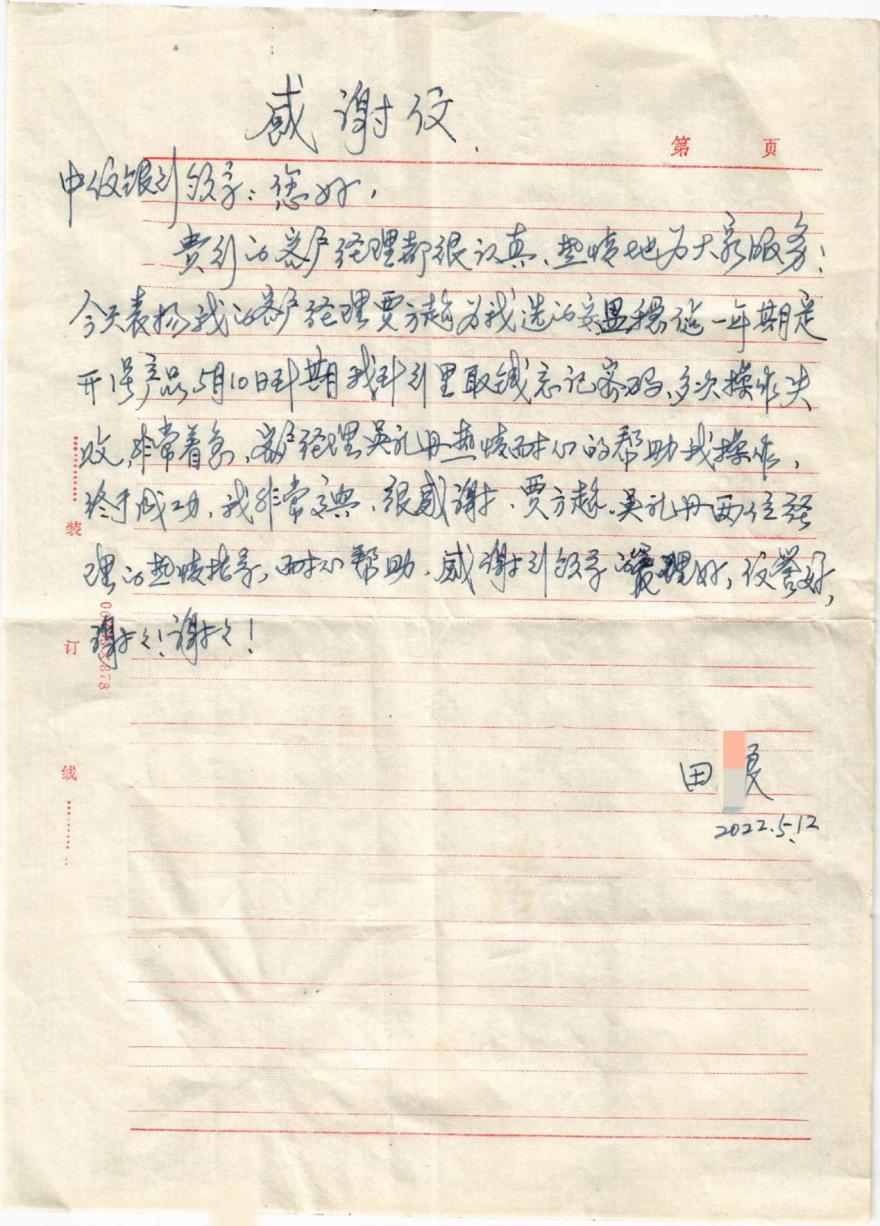 感谢信
第 页
中信银行领导:您好,
贵行的客户经理都很认真、热情地为大家服务!
今天表扬我的客户经理贾方越为我选的安盈稳健一年期定
开1号产品,5月10日到期我到行里取钱忘记密码、多次操作失
败,非常着急,客户经理吴礼丹热情耐心的帮助我操作,
终于成功,我非常高兴、很感谢、贾方越、吴礼丹两位经
理的热情指导,耐心帮助、感谢行领导的管理好,信誉好,
谢谢!谢谢!
装
订
线
田 良
2022.5.12